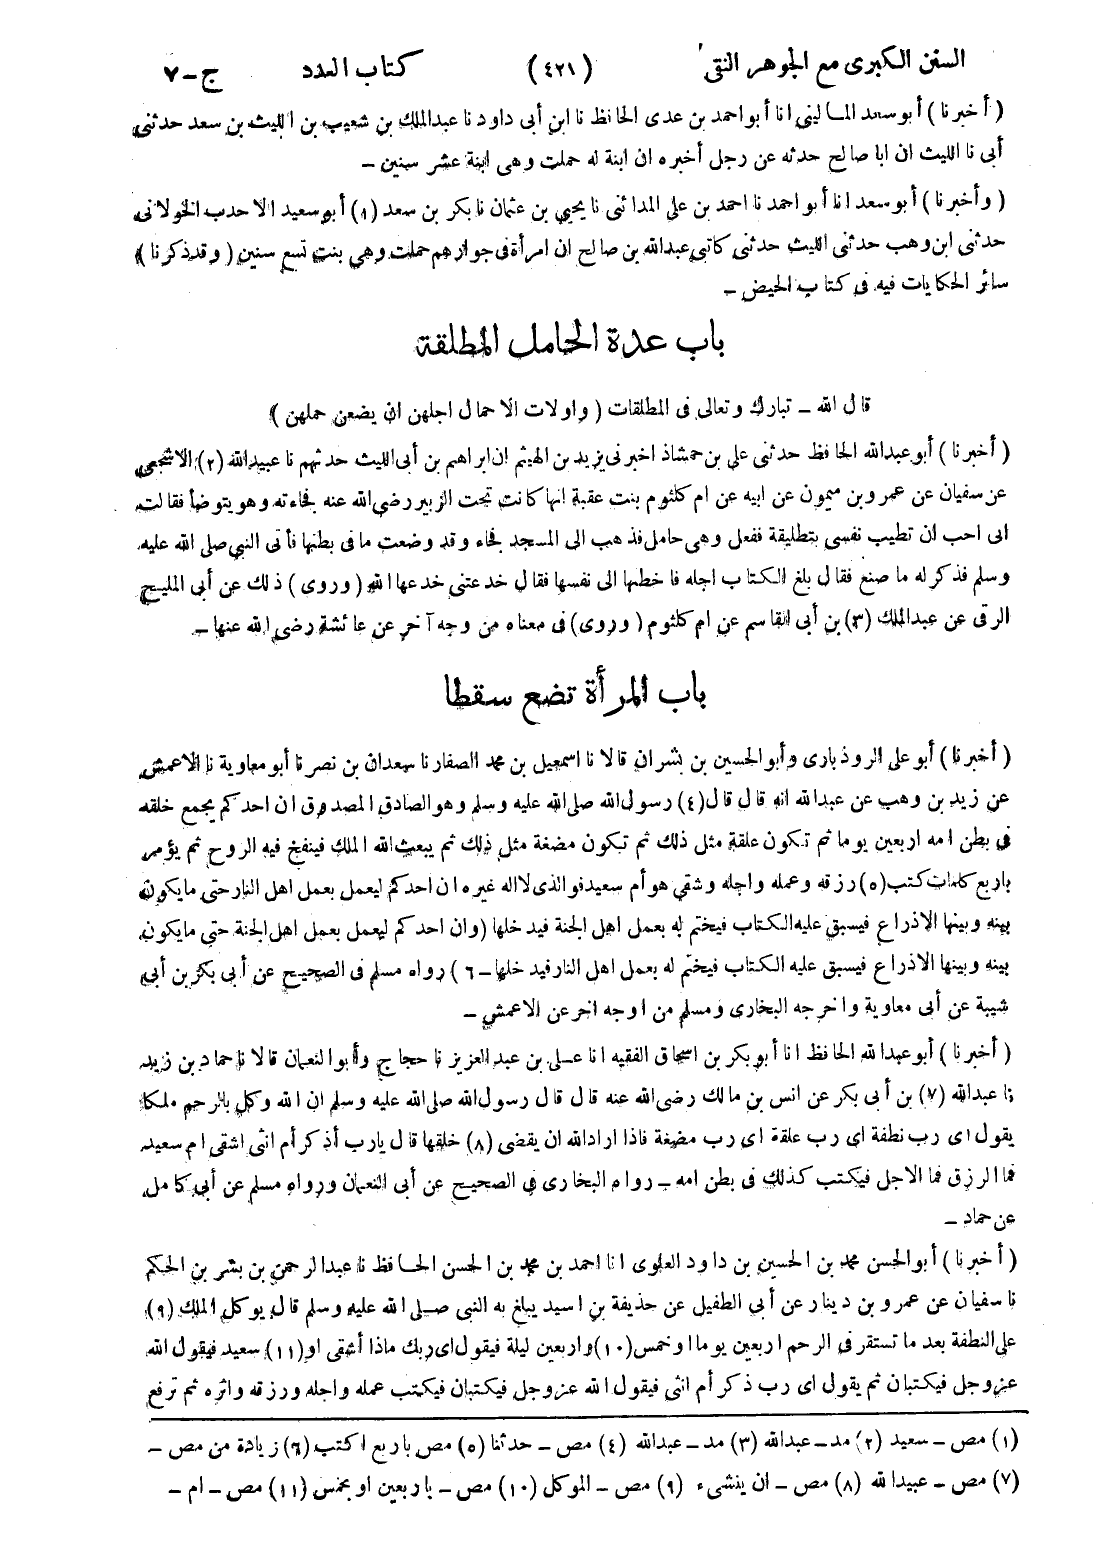 السنن الكبرى مع الجوهر النقى (٤٢١) كتاب العدد ج-٧
( أخبرنا ) أبو سعد الماليني انا أبو احمد بن عدى الحافظ نا ابن أبى داود نا عبدالملك بن شعيب بن الليث بن سعد حدثني
أبى نا الليث ان ابا صالح حدثه عن رجل أخبره ان ابنة له حملت وهى ابنة عشر سنين -
( وأخبرنا ) أبو سعد انا أبو احمد نا احمد بن على المدائنى نا يحيى بن عثمان نا بكر بن سعد (١) أبو سعيد الاحدب الخولانى
حدثنى ابن وهب حدثنى الليث حدثنى كاتبى عبدالله بن صالح ان امرأة فى جوارهم حملت وهي بنت تسع سنين ( وقد ذكرنا )
سائر الحكايات فيه فى كتاب الحيض -
باب عدة الحامل المطلقة
قال الله - تبارك وتعالى فى المطلقات ( واولات الاحمال اجلهن ان يضعن حملهن )
( أخبرنا ) أبو عبدالله الحافظ حدثنى على بن حمشاذ اخبرنى يزيد بن الهيثم ان ابراهيم بن أبى الليث حدثهم نا عبيدالله (٢) الاشجعي
عن سفيان عن عمرو بن ميمون عن ابيه عن ام كلثوم بنت عقبة انها كانت تحت الزبير رضى الله عنه فجاءته وهو يتوضأ فقالت
انى احب ان تطيب نفسى بتطليقة ففعل وهى حامل فذهب الى المسجد فجاء وقد وضعت ما فى بطنها فأتى النبي صلى الله عليه
وسلم فذكر له ما صنع فقال بلغ الكتاب اجله فاخطبها الى نفسها فقال خدعتنى خدعها الله ( وروى ) ذلك عن أبى المليح
الرقى عن عبدالملك (٣) بن أبى القاسم عن ام كلثوم ( وروى ) فى معناه من وجه آخر عن عائشة رضى الله عنها -
باب المرأة تضع سقطا
( أخبرنا ) أبو على الروذبارى وأبو الحسين بن بشران قالا نا اسمعيل بن محمد الصفار نا سعدان بن نصر نا أبو معاوية نا الاعمش
عن زيد بن وهب عن عبدالله انه قال قال (٤) رسول الله صلى الله عليه وسلم وهو الصادق المصدوق ان احدكم يجمع خلقه
فى بطن امه اربعين يوما ثم تكون علقة مثل ذلك ثم تكون مضغة مثل ذلك ثم يبعث الله الملك فينفخ فيه الروح ثم يؤمر
باربع كلمات كتب (٥) رزقه وعمله واجله وشقي هو أم سعيد فوالذى لا اله غيره ان احدكم ليعمل بعمل اهل النار حتى ما يكون
بينه وبينها الا ذراع فيسبق عليه الكتاب فيختم له بعمل اهل الجنة فيدخلها ( وان احدكم ليعمل بعمل اهل الجنة حتى ما يكون
بينه وبينها الا ذراع فيسبق عليه الكتاب فيختم له بعمل اهل النار فيدخلها - ٦ ) رواه مسلم فى الصحيح عن أبى بكر بن أبى
شيبة عن أبى معاوية واخرجه البخارى ومسلم من اوجه اخر عن الاعمش -
( أخبرنا ) أبو عبدالله الحافظ انا أبو بكر بن اسحاق الفقيه انا على بن عبدالعزيز نا حجاج وأبو النعمان قالا نا حماد بن زيد
نا عبدالله (٧) بن أبى بكر عن انس بن مالك رضى الله عنه قال قال رسول الله صلى الله عليه وسلم ان الله وكل بالرحم ملكا
يقول اى رب نطفة اى رب علقة اى رب مضغة فاذا اراد الله ان يقضى (٨) خلقها قال يارب أذكر أم انثى اشقى ام سعيد
فما الرزق فما الاجل فيكتب كذلك فى بطن امه - رواه البخارى فى الصحيح عن أبى النعمان ورواه مسلم عن أبى كامل
عن حماد -
( أخبرنا ) أبو الحسن محمد بن الحسين بن داود العلوى انا احمد بن محمد بن الحسن الحافظ نا عبدالرحمن بن بشر بن الحكم
نا سفيان عن عمرو بن دينار عن أبى الطفيل عن حذيفة بن اسيد يبلغ به النبى صلى الله عليه وسلم قال يوكل الملك (٩)
على النطفة بعد ما تستقر فى الرحم اربعين يوما او خمس (١٠) واربعين ليلة فيقول اى ربك ماذا أشقى او (١١) سعيد فيقول الله
عزوجل فيكتبان ثم يقول اى رب ذكر أم انثى فيقول الله عزوجل فيكتبان فيكتب عمله واجله ورزقه واثره ثم ترفع
(١) مص - سعيد (٢) مد - عبدالله (٣) مد - عبدالله (٤) مص - حدثنا (٥) مص باربع اكتب (٦) زيادة من مص -
(٧) مص - عبيدالله (٨) مص - ان ينشىء (٩) مص - الموكل (١٠) مص - باربعين او بخمس (١١) مص - ام -